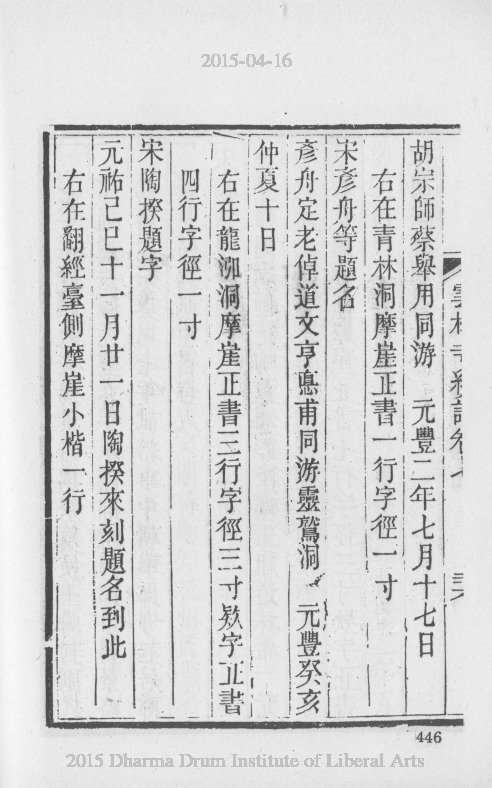 2015-04-16
胡宗師蔡舉用同游　元豐二年七月十七日
右在青林洞摩崖正書一行字徑一寸
宋彥舟等題名
彥舟定老倬道文亨悳甫同游靈鷲洞　元豐癸亥
仲夏十日
右在龍泓洞摩崖正書三行字徑三寸欵字正書
四行字徑一寸
宋陶揆題字
元祐己巳十一月廿一日陶揆來刻題名到此
右在翻經臺側摩崖小楷一行
446
2015 Dharma Drum Institute of Liberal Arts